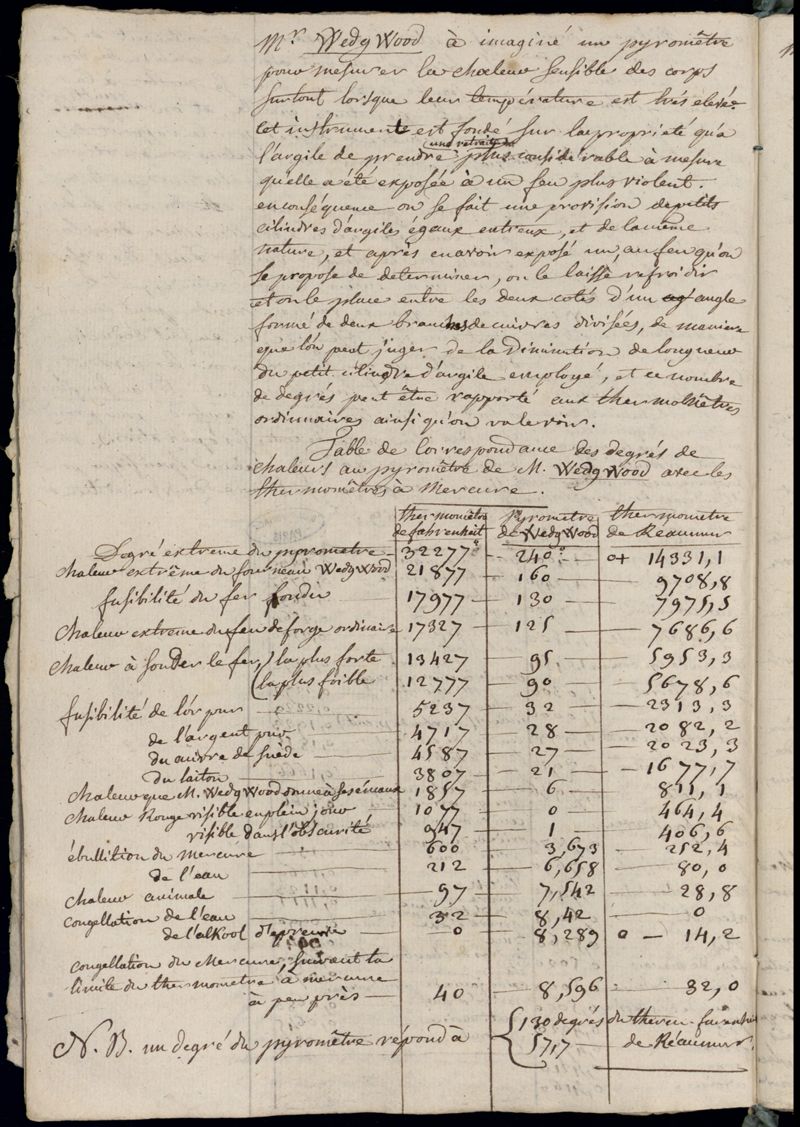 Mr Wedg Wood à imaginé un pyromêtre
pour mesurer la chaleur sensible des corps
surtout lorsque leur température est trés elevée
cet instrument est fondé sur la propriété qu'a
l'argile de prendre une retraite plus considérable à mesure
qu'elle a été exposée à un feu plus violent.
en conséquence on se fait une provision de petits
cilindres d'argiles égaux entreux, et de la même
nature, et après en avoir exposé un, au feu qu'on
se propose de determiner, on le laisse refroidir
et on le place entre les deux cotés d'un angle
formé de deux branches de cuivres divisées, de maniere
que l'on peut juger de la Diminution de longueur
du petit cilindre d'argile employé, et ce nombre
de degrés peut être rapporté aux thermomêtres
ordinnaires ainsi qu'on va le voir.
Table de Correspondance des degrés de
chaleurs au pyrometre de M. Wedg Wood avec les
thermomêtres à Mercure.
thermomêtre de fahrenheit pyrometre de WedgWood thermometre de Réaumur
Degré extreme du pyrometre 32277° 240° 0+ 14331,1
chaleur extrême du fourneau WedgWood 21877 160 9708,8
fusibilité du fer fondu 17977 130 7975,5
chaleur extreme du feu de forge ordinaire 17327 125 7686,6
chaleur à souder le fer, ( la plus forte 13427 95 5953,3
la plus foible 12777 90 5678,6
fusibilité de l'or pur 5237 32 2313,3
de l'argent pur 4717 28 2082,2
du cuivre de suède 4587 27 2023,3
du laiton 3807 21 1677,7
chaleur que M. WedgWood donne à ses émaux 1857 6 811,1
chaleur Rouge visible en plein jour 1077 0 464,4
visible dans l'obscurité 947 1 406,6
ébullition du mercure 600 3,673 252,4
de l'eau 212 6,658 80,0
chaleur animale 97 7,542 28,8
congellation de l'eau 32 8,42 0
de l'alkool d'epreuve 0 8,289 0 — 14,2
congellation du Mercure, suivant la
limite du thermometre à mercure
à peu près 40 8,596 32,0
N. B. un degré du pyromêtre répond à { 130 degrés du therm. farenheit
57,7 de Réaumur.